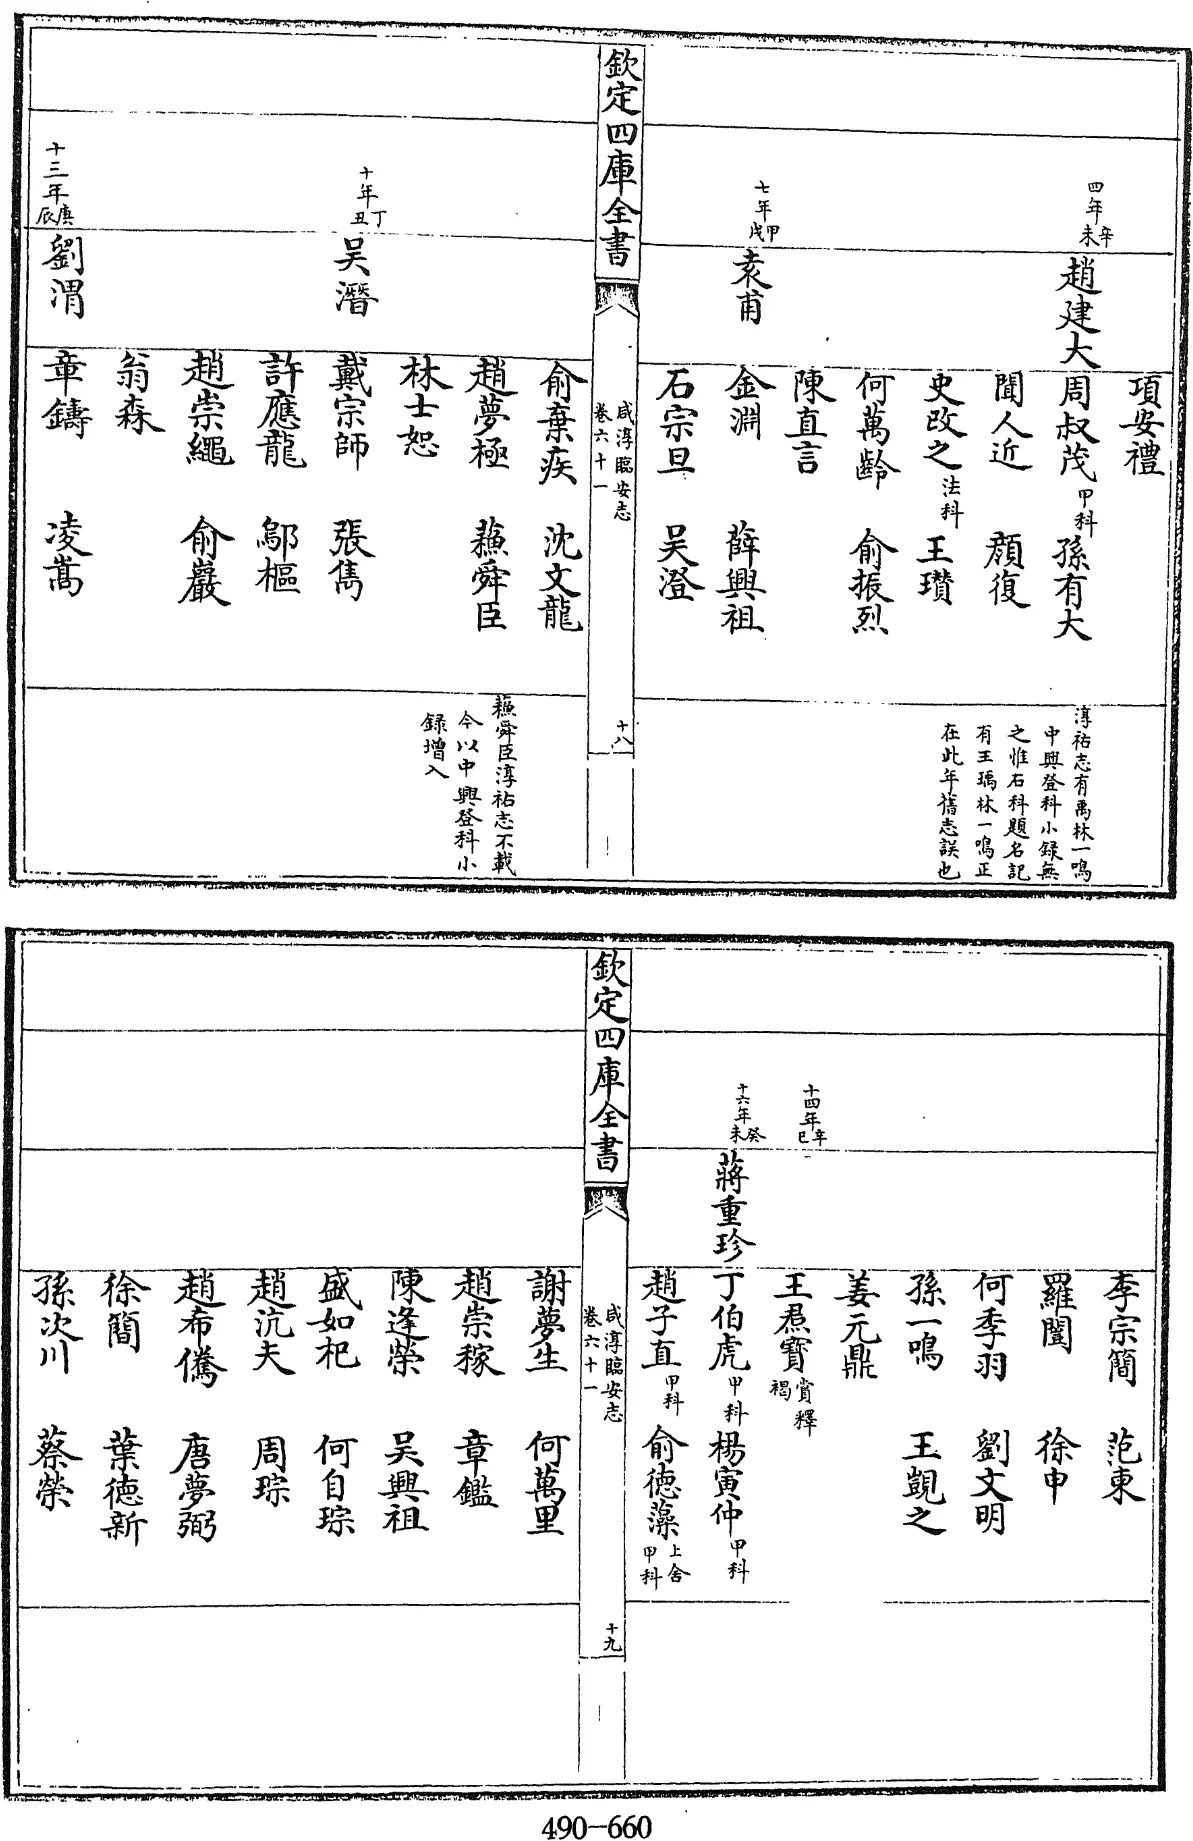 項安禮
四年辛未 趙建大 周叔茂甲科 孫有大 淳祐志有禹林一鳴
聞人近 顔復 中興登科小録無
史改之法科 王瓚 之惟石科題名記
何萬齡 俞振烈 有王瑀林一鳴正
陳直言 在此年舊志誤也
七年甲戌 袁甫 金淵 薛興祖
石宗旦 吴澄
欽定四庫全書 咸淳臨安志 卷六十一 十八
俞棄疾 沈文龍
趙夢極 蘓舜臣 蘓舜臣淳祐志不載
林士恕 今以中興登科小
録增入
十年丁丑 吴潛 戴宗師 張雋
許應龍 鄔樞
趙崇繩 俞巖
翁森
十三年庚辰 劉渭 章鑄 凌嵩
李宗簡 范東
羅闓 徐申
何季羽 劉文明
孫一鳴 王覬之
姜元鼎
十四年辛巳 王焄寳賞釋褐
十六年癸未 蔣重珍 丁伯虎甲科 楊寅仲甲科
趙子直甲科 俞德藻上舍甲科
欽定四庫全書 咸淳臨安志 卷六十一 十九
謝夢生 何萬里
趙崇稼 章鑑
陳逢榮 吴興祖
盛如杞 何自琮
趙沆夫 周琮
趙希儁 唐夢弼
徐簡 葉德新
孫次川 蔡榮
490-660